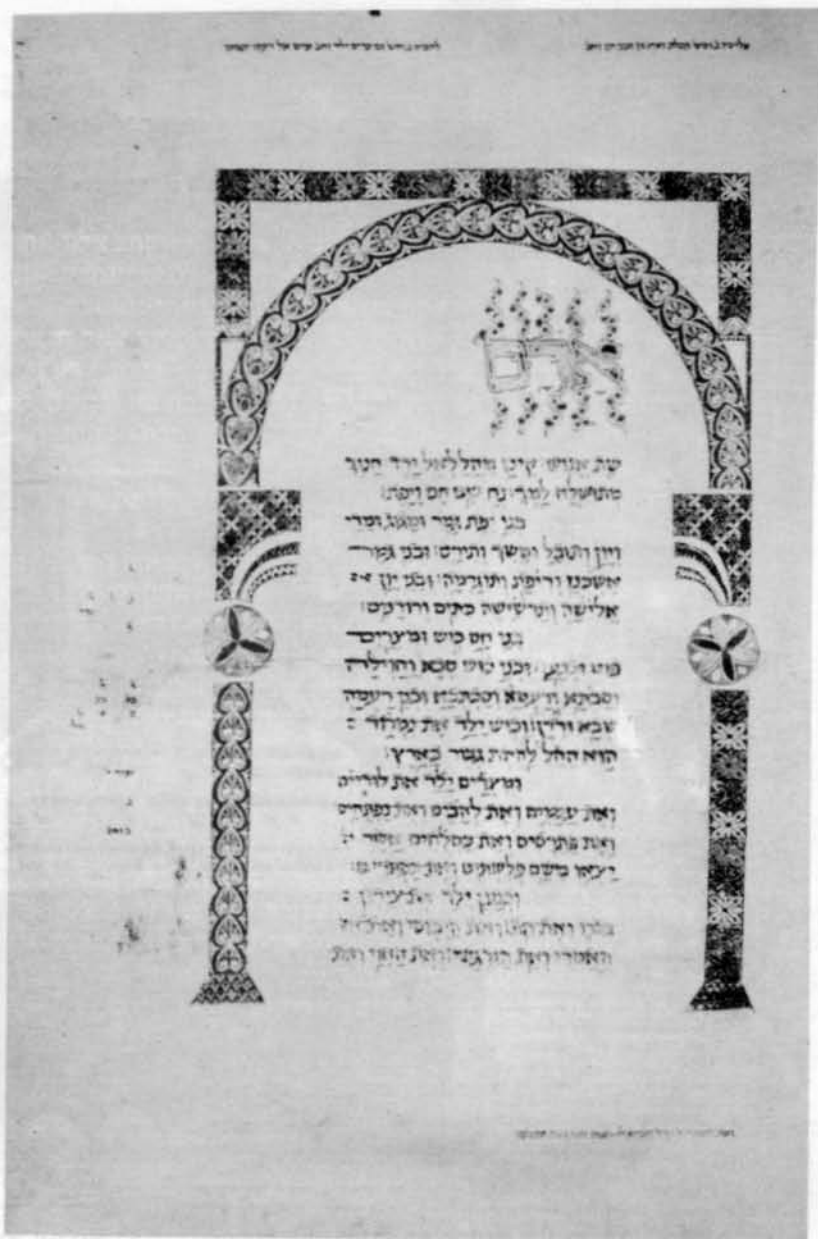 אדם
שת אנוש קינן מהללאל ירד חנוך
מתושלח למך נח שם חם ויפת׃
בני יפת גמר ומגוג ומדי
ויון ותובל ומשך ותירס׃ ובני גמר
אשכנז וריפת ותוגרמה׃ ובני יון
אלישה ותרשישה כתים ורודנים׃
בני חם כוש ומצרים
פוט וכנען׃ ובני כוש סבא וחוילה
וסבתא ורעמא וסבתכא ובני רעמה
שבא ודדן׃ וכוש ילד את נמרוד
הוא החל להיות גבור בארץ׃
ומצרים ילד את לודיים
ואת ענמים ואת להבים ואת נפתחים
ואת פתרסים ואת כסלחים אשר
יצאו משם פלשתים ואת כפתרים׃
וכנען ילד את צידון
בכרו ואת חת׃ ואת היבוסי ואת
האמרי ואת הגרגשי׃ ואת החוי ואת